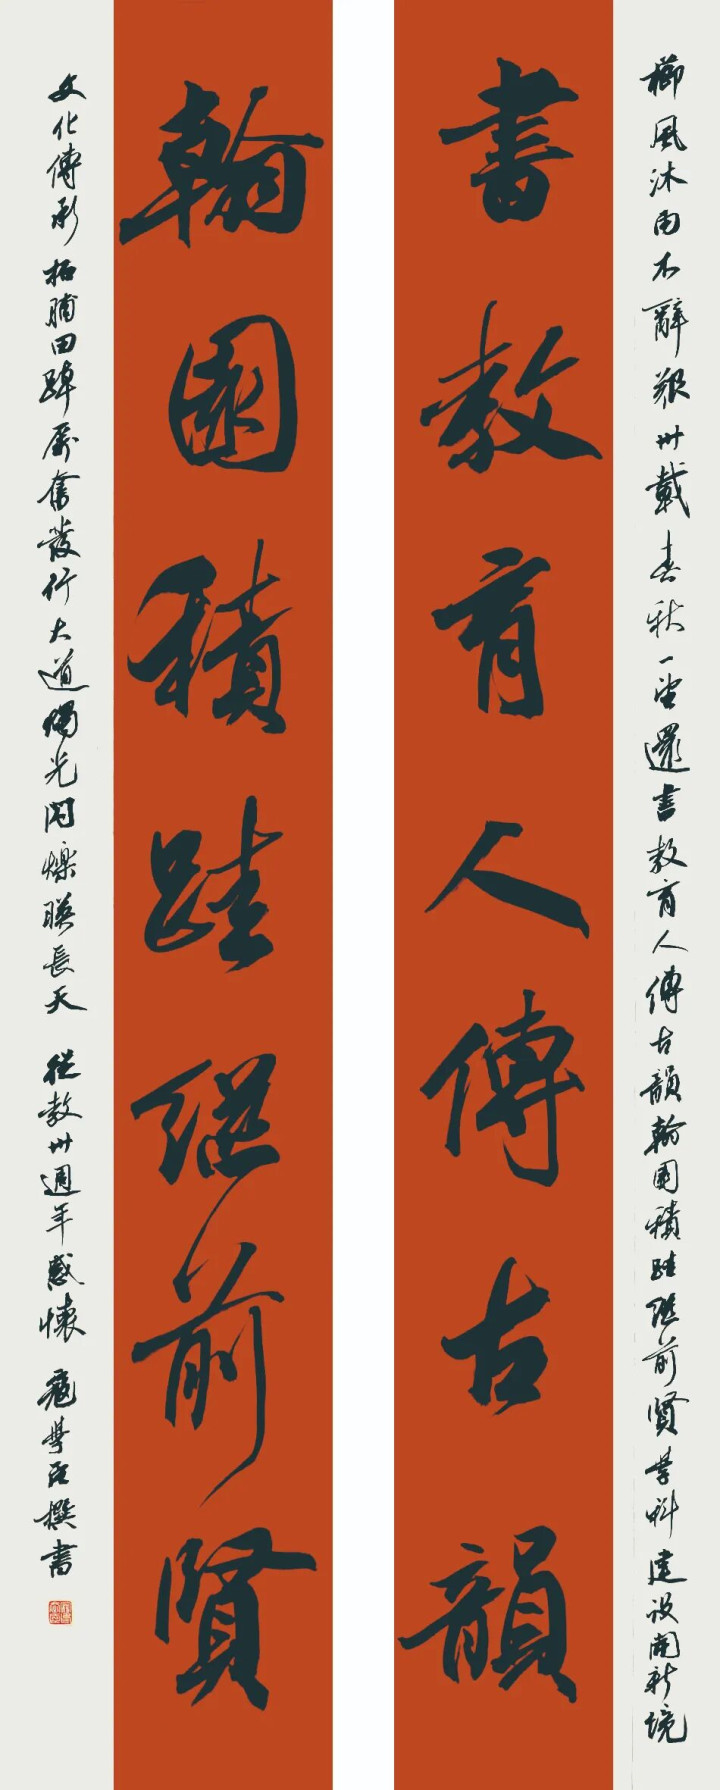 櫛風沐雨不辭艱卅載春秋一望還書教育人傳古韻翰園積跬继前賢學科建設開新境
書教育人傳古韻
翰園積跬继前賢
文化傳承拓脯田踔厲奮發行大道燭光閃爍暎長天 從教卅週年感懷 寇學臣撰書